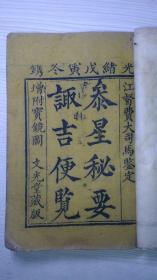 光緒戊寅冬鐫
江督費大司馬鑑定
叅星秘要
諏吉便覽
增附寶鏡圖 文光堂藏版